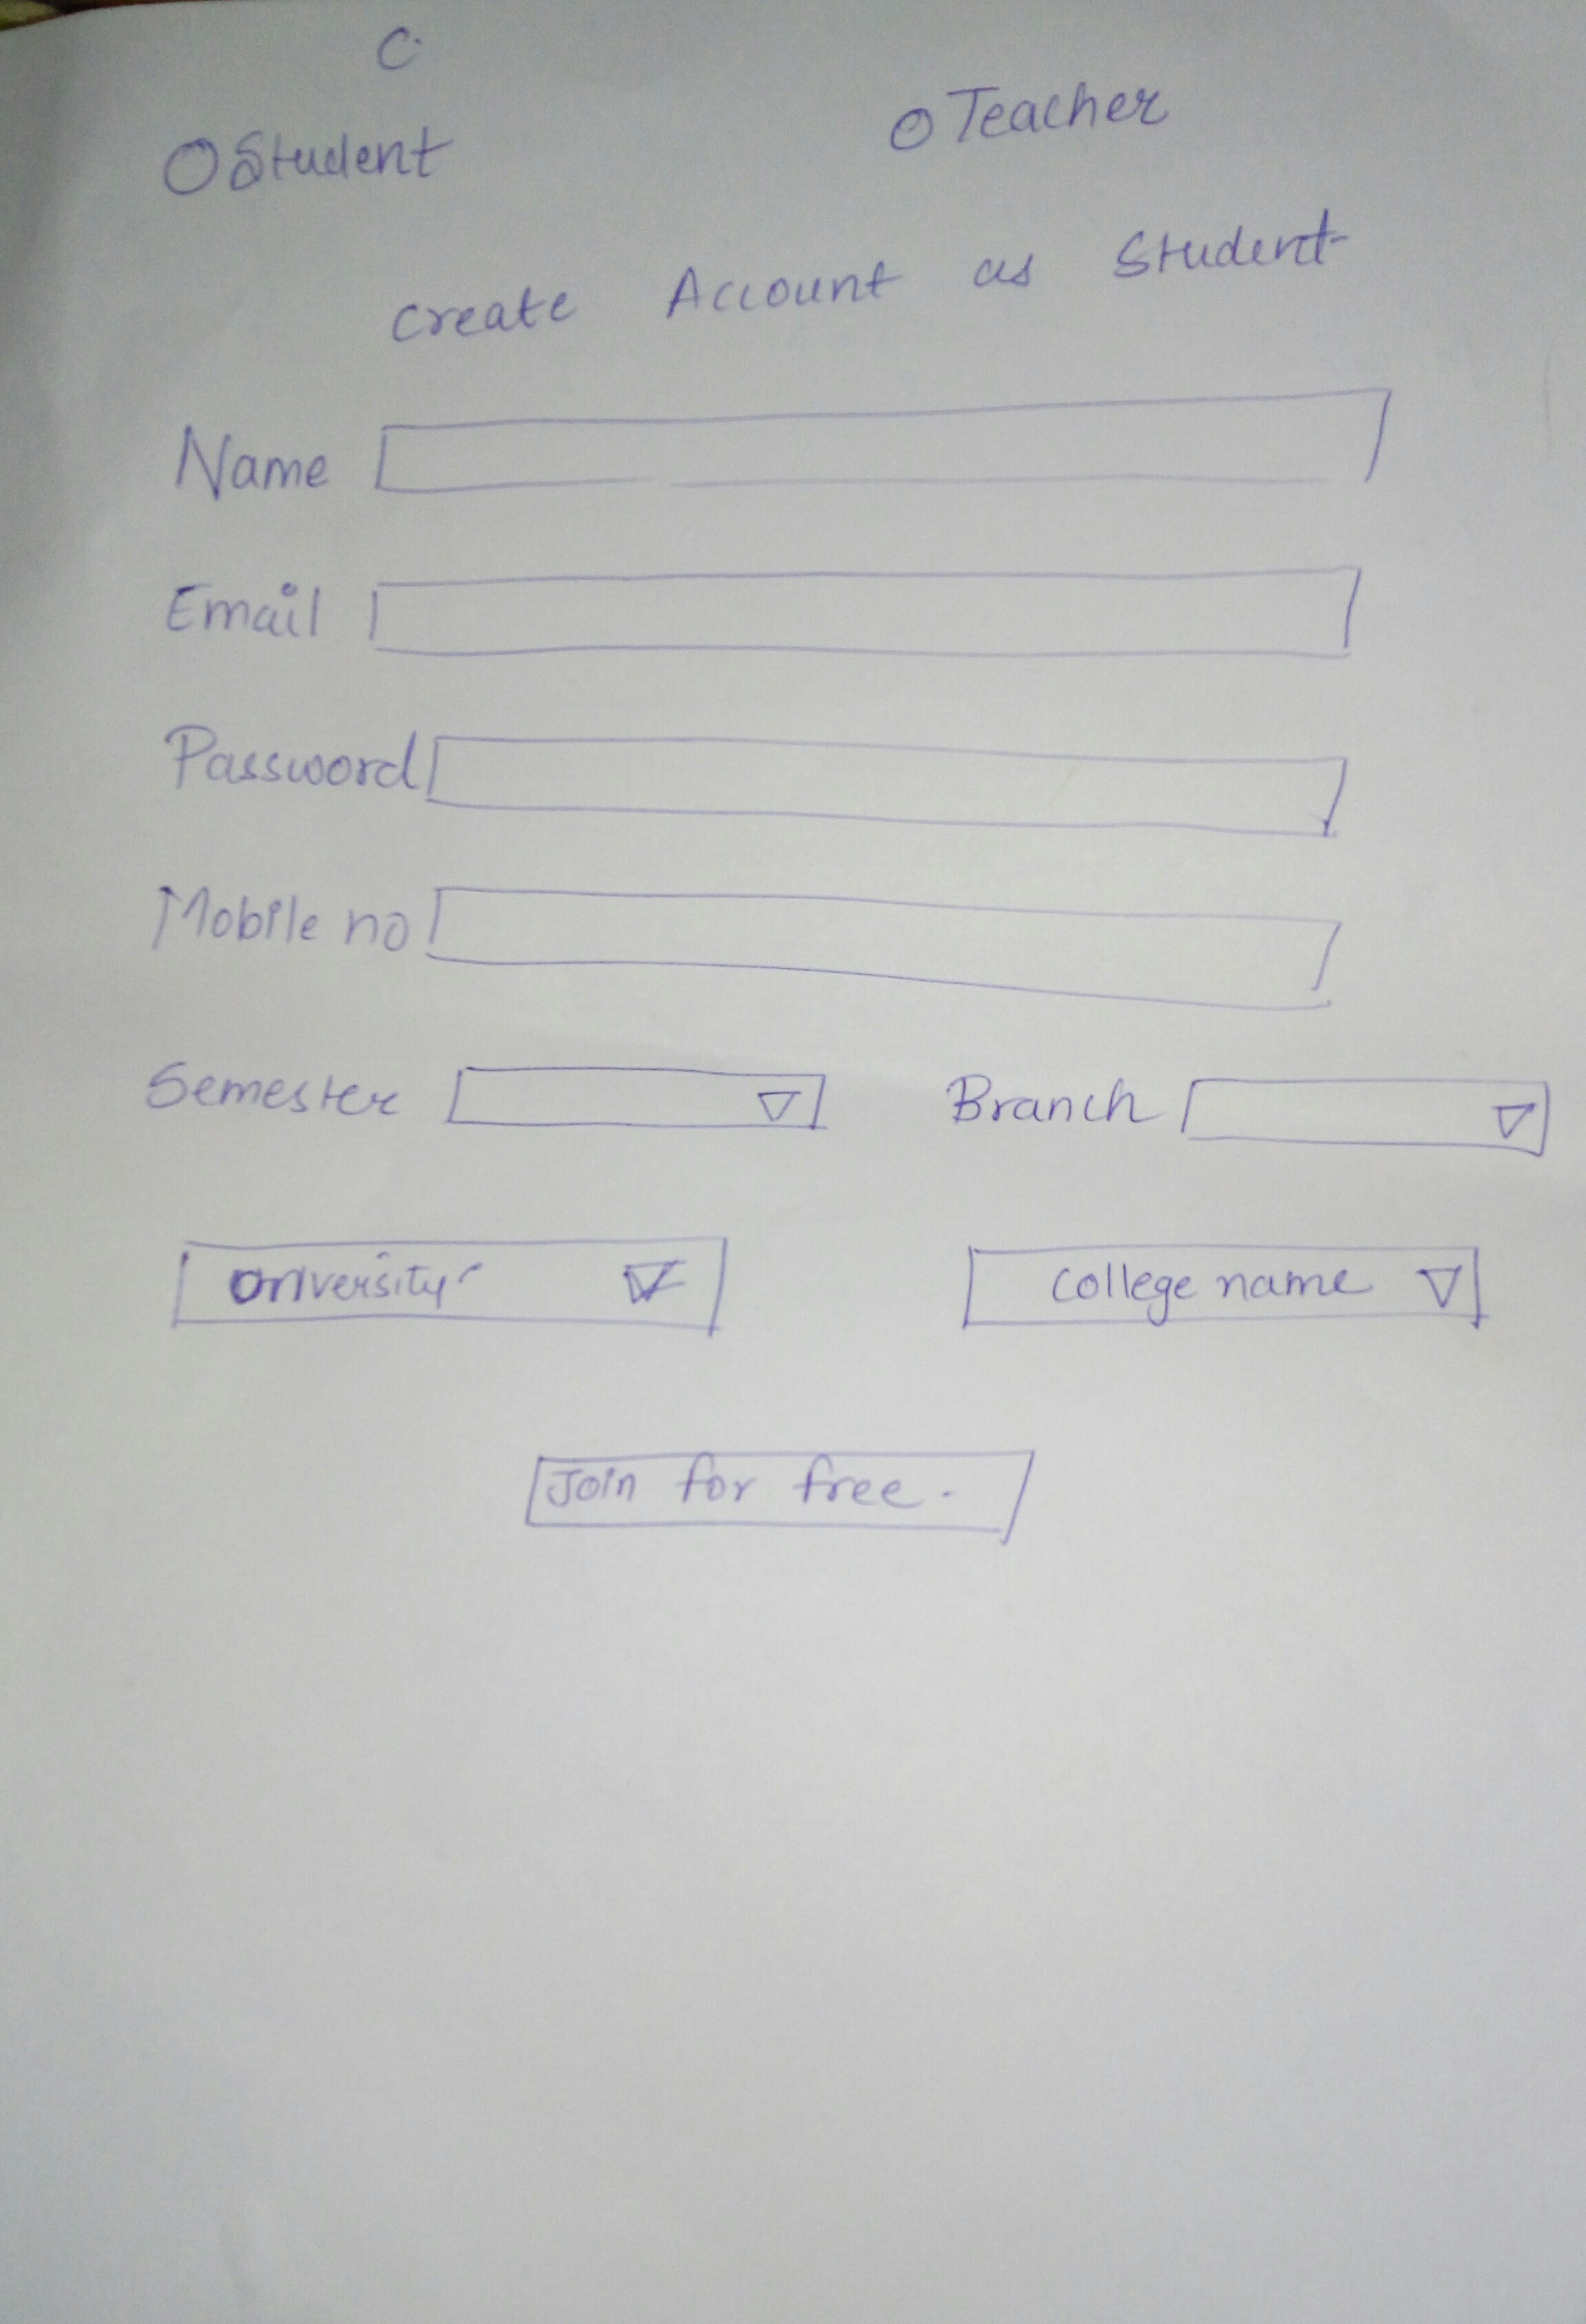 C
Student
Teacher
Create Account as Student
Name
Email
Password
Mobile no
Semester Branch
University College name
Join for free.